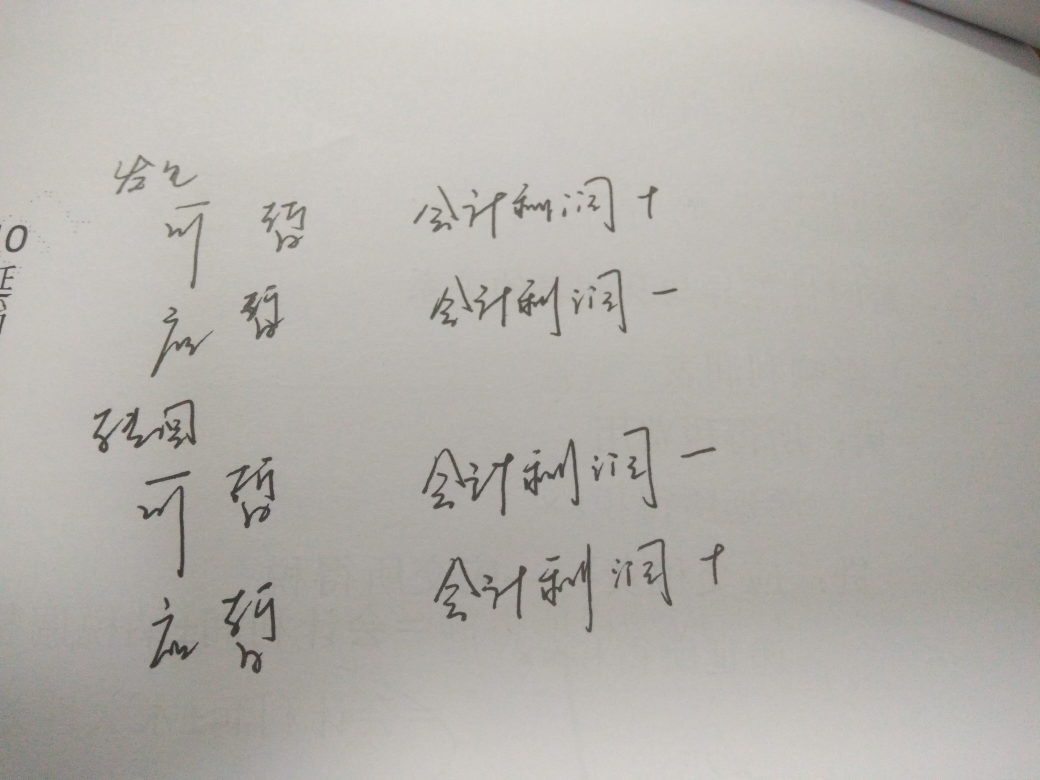 发生
可 暂 会计利润 +
应 暂 会计利润 -
转回
可 暂 会计利润 -
应 暂 会计利润 +
10